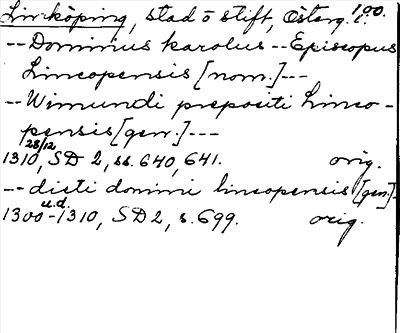 Linköping, stad o stift, Österg. l. 100.
-- Dominus karolus -- Episcopus
Lincopensis [nom.] ---
-- Wimundi prepositi Linco-
pensis [gen.] ---
1310 28/12, SD 2, ss. 640, 641. orig.
-- dicti domini lincopensis [gen.] -
1300 - 1310 u.d., SD 2, s. 699. orig.